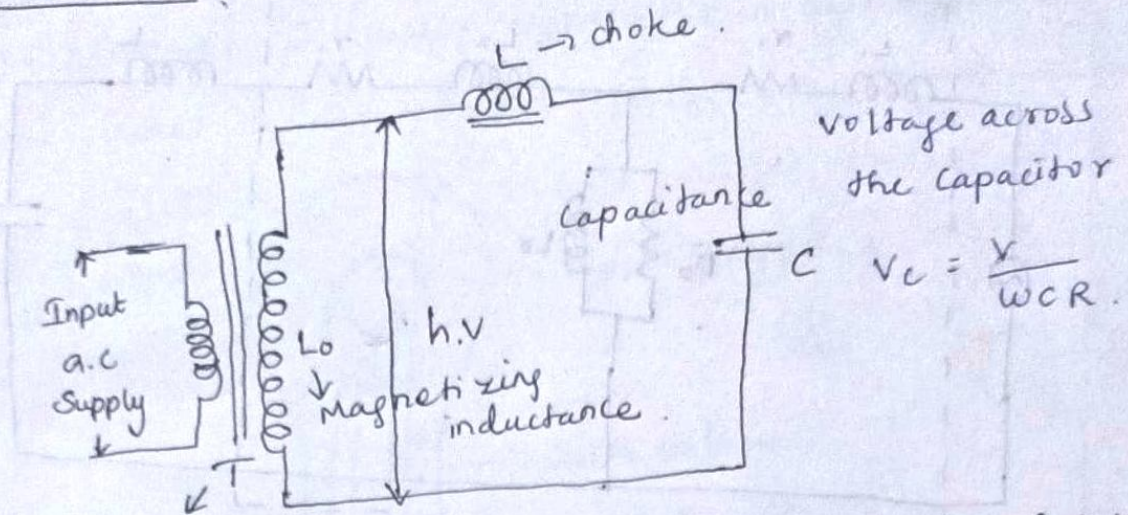 L → choke.
voltage across
the capacitor
Capacitance
C
Vc = V / ωCR.
Input
a.c
Supply
Lo
h.v
Magnetizing
inductance.
T